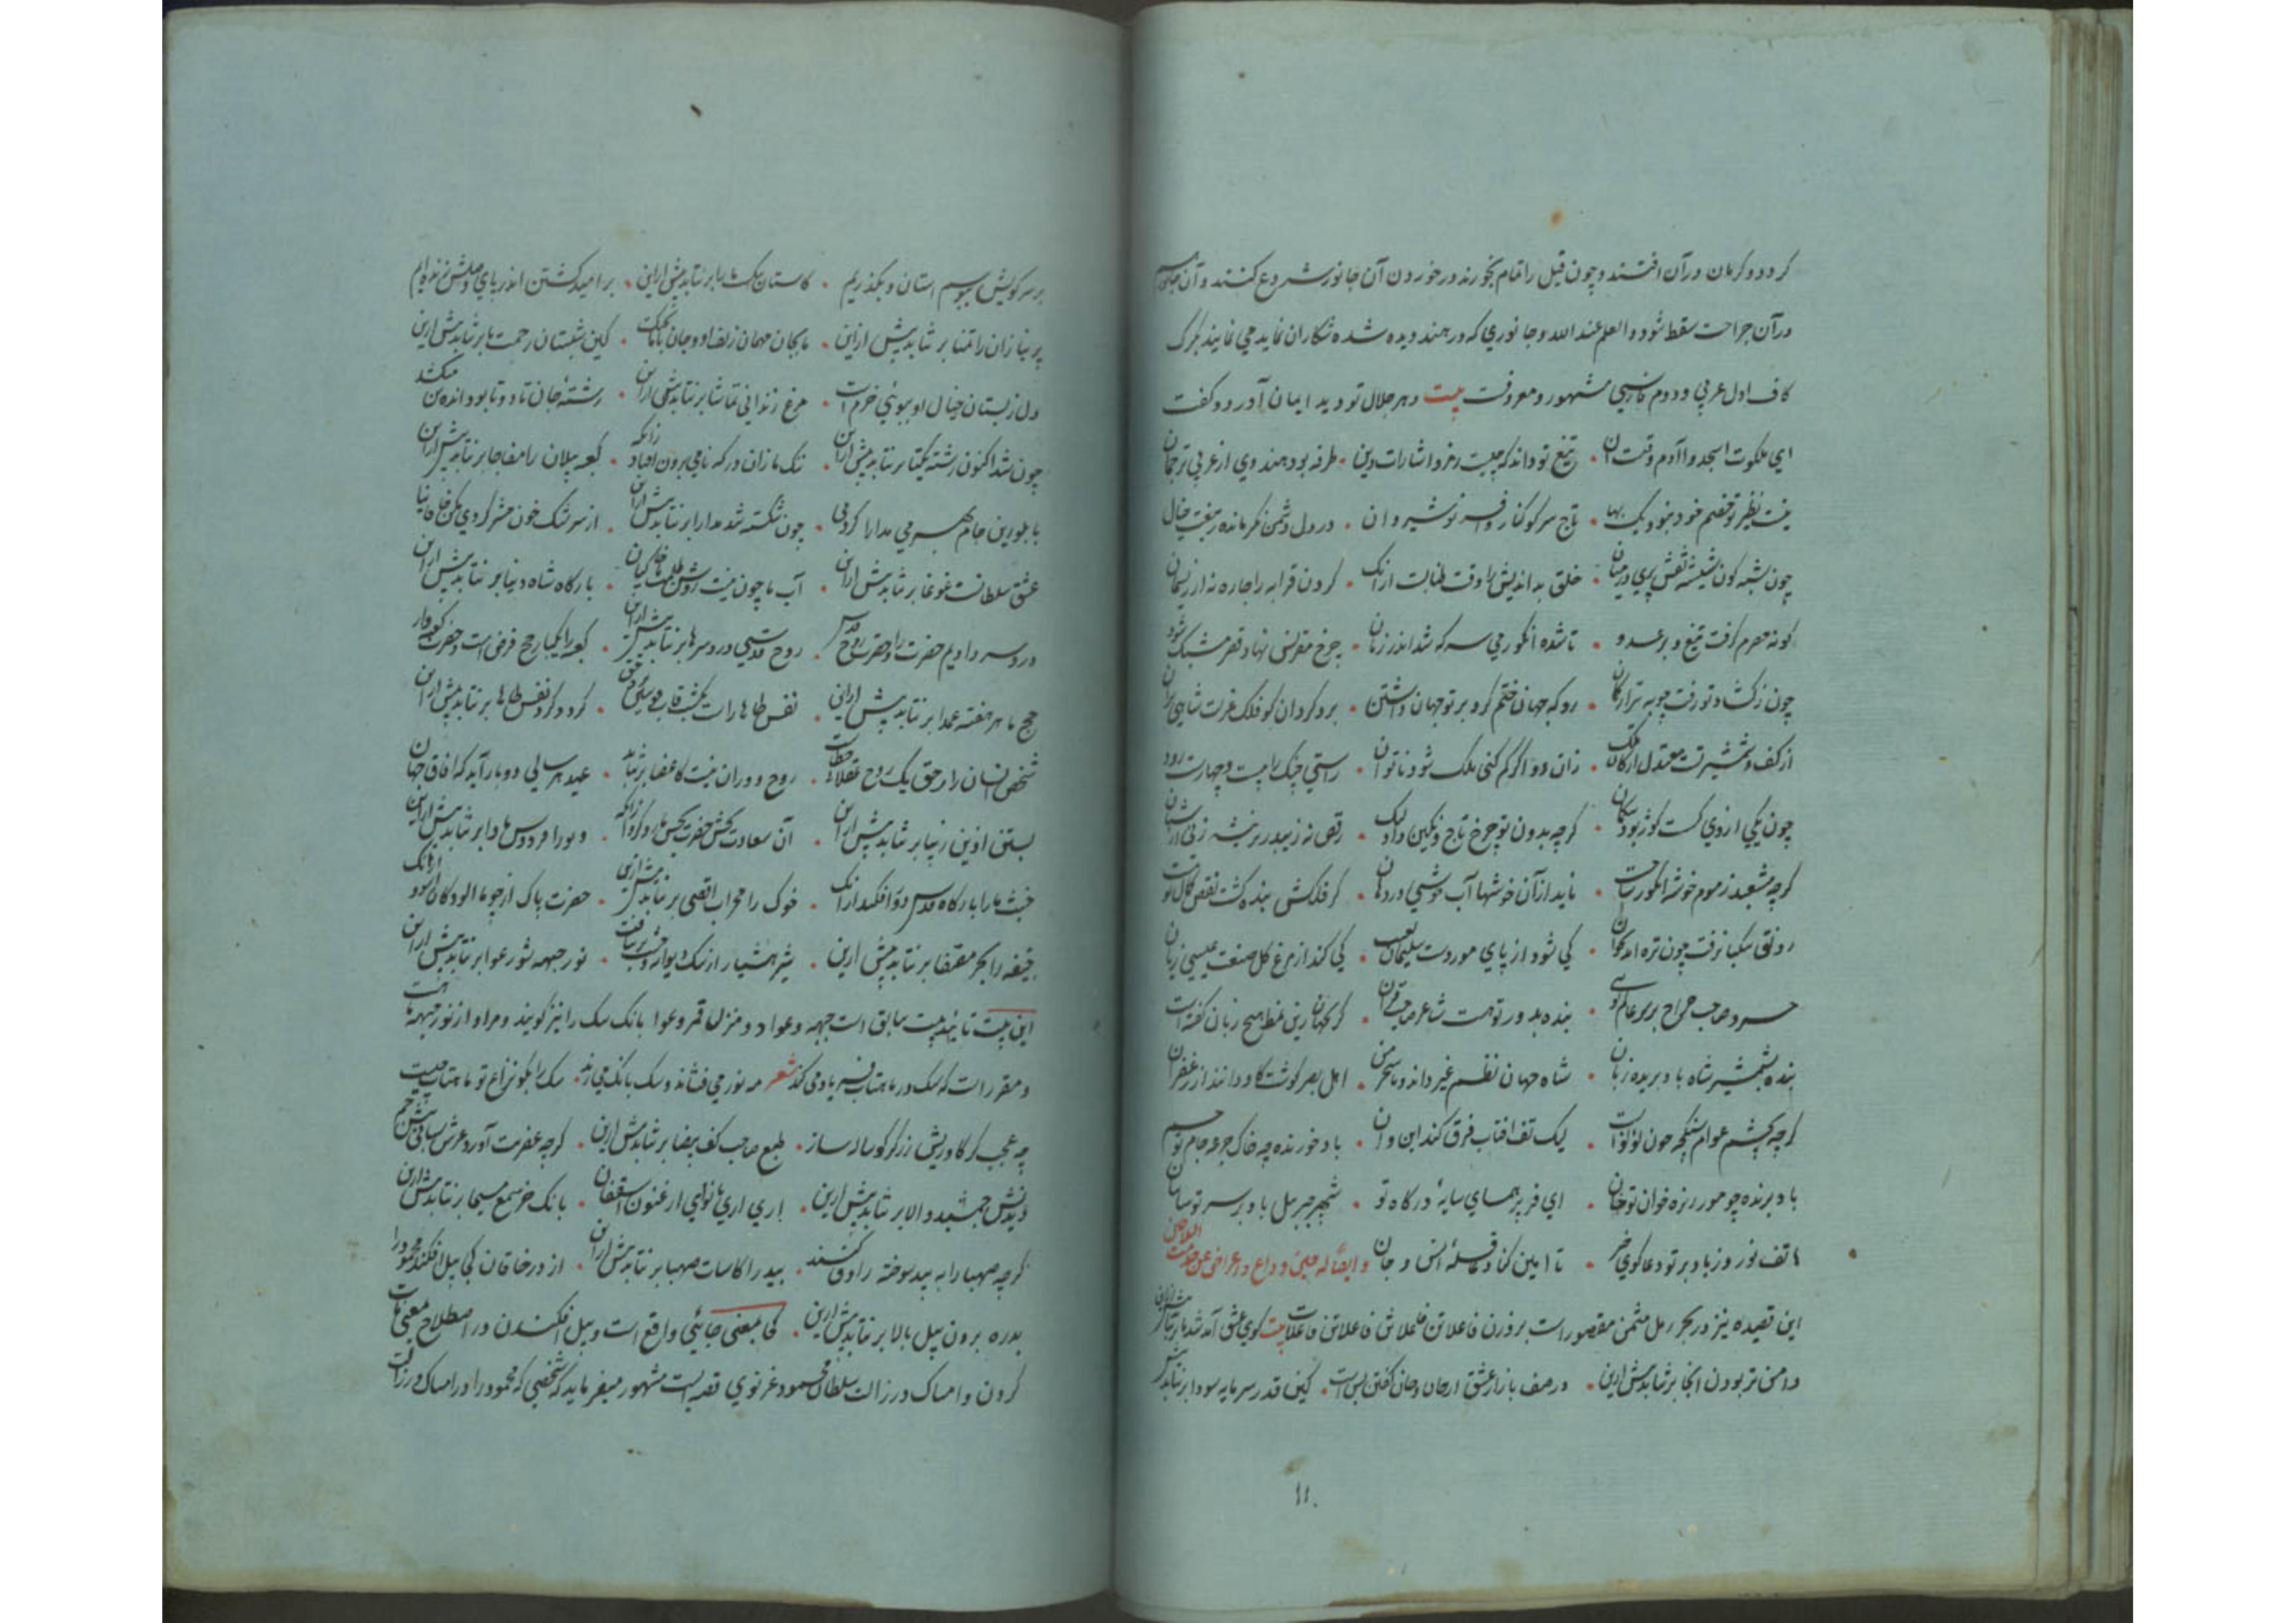 کردد و کرمان در آن افتند و چون قیل را تمام بخورند در خوردن آن جانور شروع کنند و آن
در آن جراحت سقط شود و العلم عند الله و جانوری که در هند دیده شده شکاران نماید می نمایند کرک
کاف اول عربی و دوم فارسی مشهور و معروفت بیت دهر جلال تو دید ایمان آورد و کفت
ای ملکوت اسجدوا آدم وقت است آن · تیغ تو داند که چیست رمز و اشارات دین · طرفه بود هندوی از عربی ترجمان
نیست نظیر تو خصم خود نبود یک بها · تاج سر کوکنار و افسر نوشیروان · در دل دشمن نکر مانده ز تیغت خیال
چون شبه کون شیشه نقش پری در میان · خلق بداندیش را وقت طنابست ازانک · کردن قرابه را چاره نه از ریسمان
کونه حصرم کرفت تیغ و بر عدو · تا شده انکور می سرکه شد اندر زمان · چرخ مقرنس نهاد قصر مشبک شود
چون ز کشاد تو رفت چوبه تیر از کمان · رو که جهان ختم کرد بر تو جهان داشتن · برو کردان کو فلک عزت شاهی بران
از کف و شمشیر تست معتدل ارکان ملک · زان دو اکر کم کنی ملک شود ناتوان · راستی چنک را بیست و چهارست رود
چون یکی از وی کسست کوژ بود · کرچه بدون تو چرخ تاج و نکین داد لیک · رقص نه زیبد ز بز تیشه زنی از شبان
کرچه مشعبد ز موم خوشه انکور ساخت · ناید از آن خوشها آب خوشی در دهان · کر فلکش بنده کشت نقص کمال تو نیست
رونق سکبا نرفت چون تره آمد بخوان · کی شود از پای مور دست سلیمان بعیب · کی کند از مرغ کل صنعت عیسی زیان
خسرو صاحب خراج بر سر عالم توسی · بنده بدور تو هست شاعر صاحب قران · کر بجهان زین نمط هیچ زبان کفته است
بنده بشمشیر شاه باد بریده زبان · شاه جهان نظم غیر داند و سحر من · اهل بصر کوشت کاو دانند از زعفران
کرچه بچشم عوام سنکچه چون لؤلؤ است · لیک تف افتاب فرق کند این و آن · باد خورنده چه خاک جرعه جام تو جم
باد برنده چو مور ریزه خوان تو خان · ای فر پر همای سایهٔ درکاه تو · شهپر جبرئیل باد بر سر تو سایبان
هاتف نوروز باد بر تو دعا کوی خیر · تا امین کناد قافلهٔ انس و جان و ایضا له حین وداع و اعراض عن خدمت السلاطین
این قصیده نیز در بحر رمل مثمن مقصور است بر وزن فاعلاتن فاعلاتن فاعلاتن فاعلات بیت کوی عشق آمد شد ما برنتابد بیش ازین
دامن تر بودن آنجا برنتابد بیش ازین · در صف بازار عشق از جان و جان کفتن بس است · کین قدر سرمایه سودا برنتابد بیش
بر سر کویش ببوسیم استان و بکذریم · کاستان یک ما را برنتابد بیش ازین · بر امید کشتن اندر پای وصلش زنده ام
پر نیازان را تمنا برنتابد بیش ازین · ما بجان مهمان زلف او و جان با ما بجنک · کین شبستان زحمت ما برنتابد بیش ازین
دل ز بستان خیال او ببوئی خرم است · مرغ زندانی تماشا برنتابد بیش ازین · رشتهٔ جان تا دو تا بود انده تن میکشد
چون شد اکنون رشته یکتا برنتابد بیش ازین · ننک ما زان درکه نامی برون افتاد زانکه · کعبه پیلان را مفاجا برنتابد بیش ازین
با بلورین جام بهر می مدارا کردمی · چون شکسته شد مدارا برنتابد بیش ازین · از سر شک خون حشر کردی مکن خاقانیا
عشق سلطانست غوغا برنتابد بیش ازین · آب ما چون نیست روشن خاکیان · بارکاه شاه دنیا برنتابد بیش ازین
درد سر دادیم حضرت را و حضرت روح قدس · روح قدسی درد سرها برنتابد بیش ازین · کعبه را یکبار حج فرض است و حضرت کعبه وار
حج ما هر هفته عمدا برنتابد بیش ازین · کرد و کرد نفس طاها برنتابد بیش ازین
شخص انسان را ز حق یک روح عقلا · روح دوران نیست کاعضا برنتابد · عید هر سالی دو بار آید که افاق جهان
بستن اذین زیبا برنتابد بیش ازین · آن سعادت بخش حضرت نحس ما رد کرد زانکه · دیو را فردوس ماوا برنتابد بیش ازین
خبث ما را بارکاه قدس دور افکند ازانک · خوک را محراب اقصی برنتابد بیش ازین · حضرت پاک از چو ما الودکان اسود ازانک
جیفه را بحر مصفا برنتابد بیش ازین · شیر هشیار از سک دیوانه وحشت برنتافت · نور جبهه شور عوا برنتابد بیش ازین
این بیت تائید بیت سابق است جبهه و عوا دو منزل قمر و عوا بانک سک را نیز کویند و مراد از نور جبهه ماه است
و مقرر است که سک در ماهتاب فریاد می کند شعر مه نور می فشاند و سک بانک می زند · سک را بکو نزاع تو با ماهتاب چیست
چه عجب کر کاو ریش زرکر کوساله ساز · طبع صاحب کف بیضا برنتابد بیش ازین · کرچه عفریت آورد عرش سبائی پیش جم
دیدنش جمشید والا برنتابد بیش ازین · اری اری با نوای ارغنون اسقفان · بانک خر سمع مسیحا برنتابد بیش ازین
کرچه صهبا را به بید سوخته راوق کنند · بید را کاسات صهبا برنتابد بیش ازین · از در خاقان کی پیل افکند محمود را
بدره بردن پیل بالا برنتابد بیش ازین · کجا بمعنی جائی واقع است و پیل افکندن در اصطلاح بمعنی مات
کردن و امساک در زان سلطان محمود غزنوی قصه ایست مشهور میفرماید که شخصی که محمود را در امساک